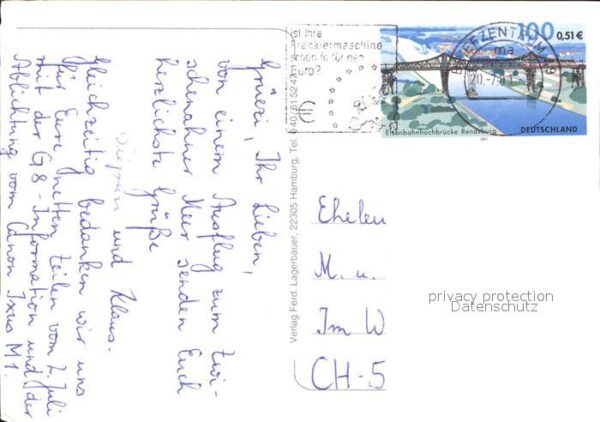 Grüezi, Ihr Lieben,
von einem Ausflug zum Zwi-
schenahner Meer senden Euch
herzlichste Grüße
und Klaus.
Gleichzeitig bedanken wir uns
für Eure netten Zeilen vom 2. Juli
mit der G8-Information und der
Ablichtung vom Canon Ixus M1.
Verlag Ferd. Lagerbauer, 22305 Hamburg, Tel. 040/
Ist Ihre
Frankiermaschine
schon fit für den
Euro?
BRIEFZENTRUM
ma
20.-7.
100
0,51 €
Eisenbahnhochbrücke Rendsburg
DEUTSCHLAND
Ehelen
M. u.
Im W
CH-5
privacy protection
Datenschutz